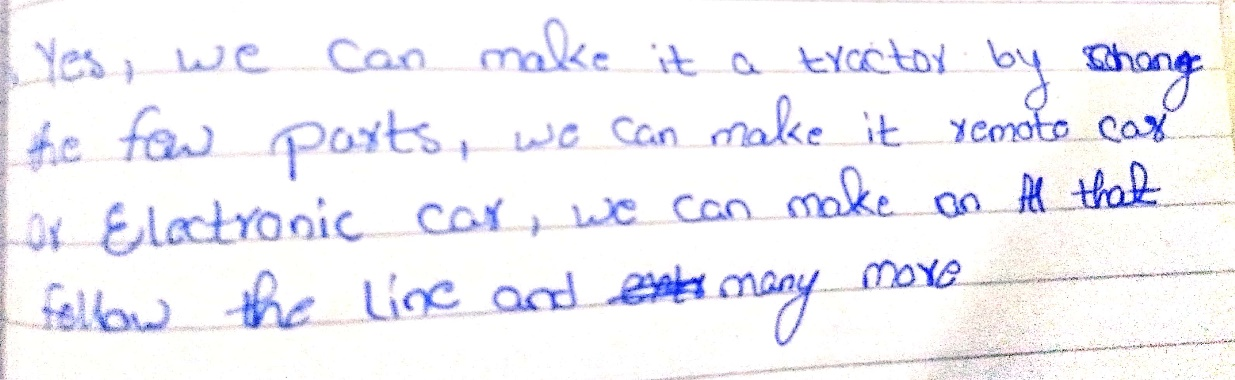 Yes, we can make it a tractor by Chang
the few parts, we can make it remote car
or Electronic car, we can make an AI that
follow the line and many more